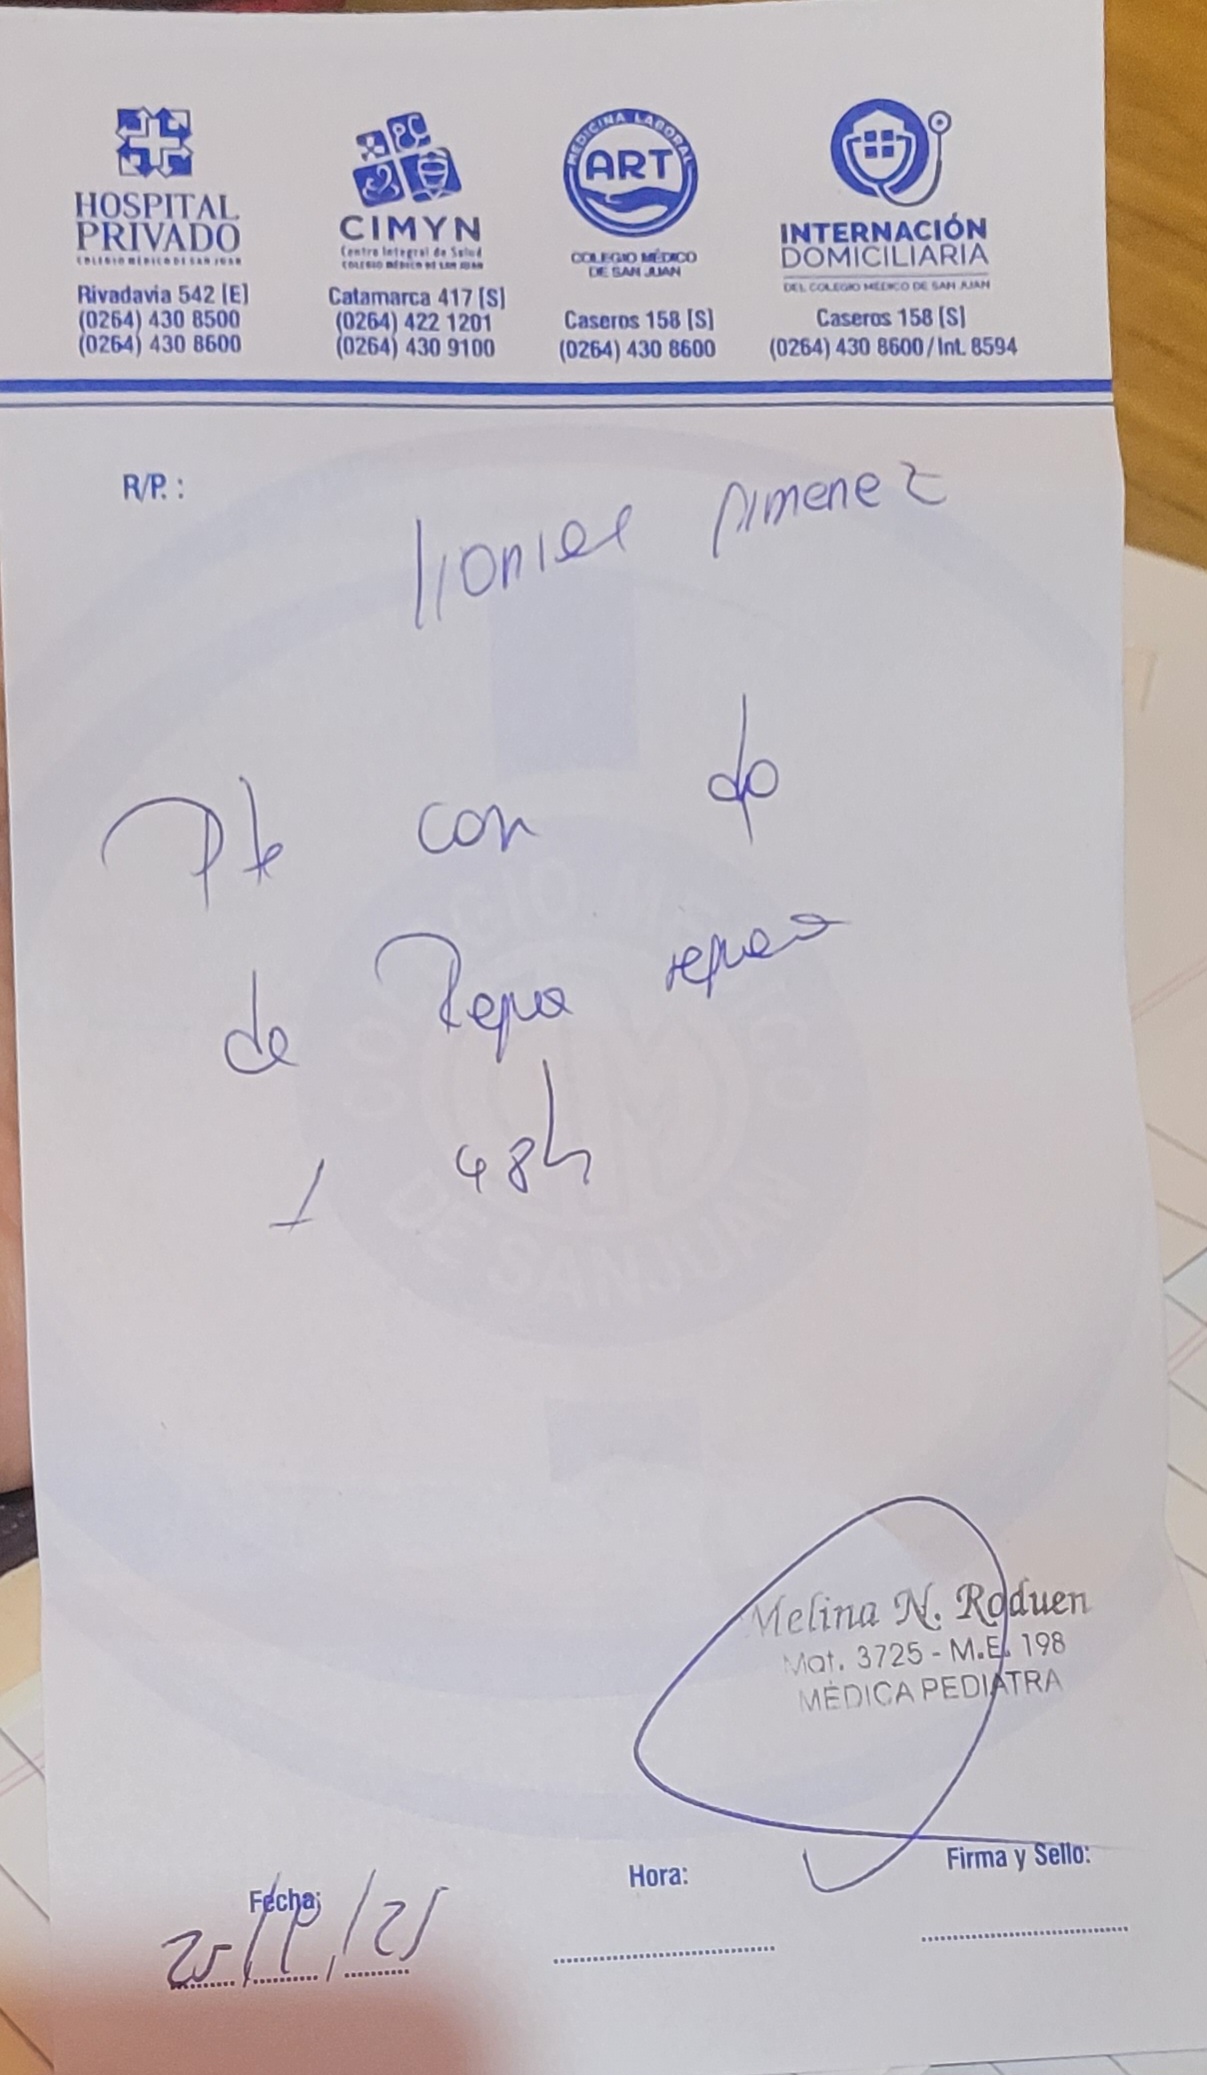 HOSPITAL
PRIVADO
COLEGIO MÉDICO DE SAN JUAN
Rivadavia 542 [E]
(0264) 430 8500
(0264) 430 8600
CIMYN
Centro Integral de Salud
COLEGIO MÉDICO DE SAN JUAN
Catamarca 417 [S]
(0264) 422 1201
(0264) 430 9100
MEDICINA LABORAL
ART
COLEGIO MÉDICO
DE SAN JUAN
Caseros 158 [S]
(0264) 430 8600
INTERNACIÓN
DOMICILIARIA
DEL COLEGIO MÉDICO DE SAN JUAN
Caseros 158 [S]
(0264) 430 8600 / Int. 8594
R/P. :
Pte con
de
48h
COLEGIO MÉDICO
DE SAN JUAN
Melina N. Roduen
Mat. 3725 - M.E. 198
MÉDICA PEDIATRA
Fecha:
Hora:
Firma y Sello: